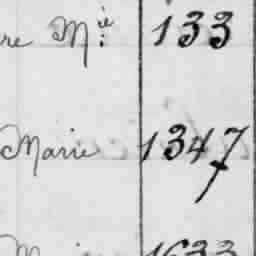 re M.ie 133
Marie 1347
1633